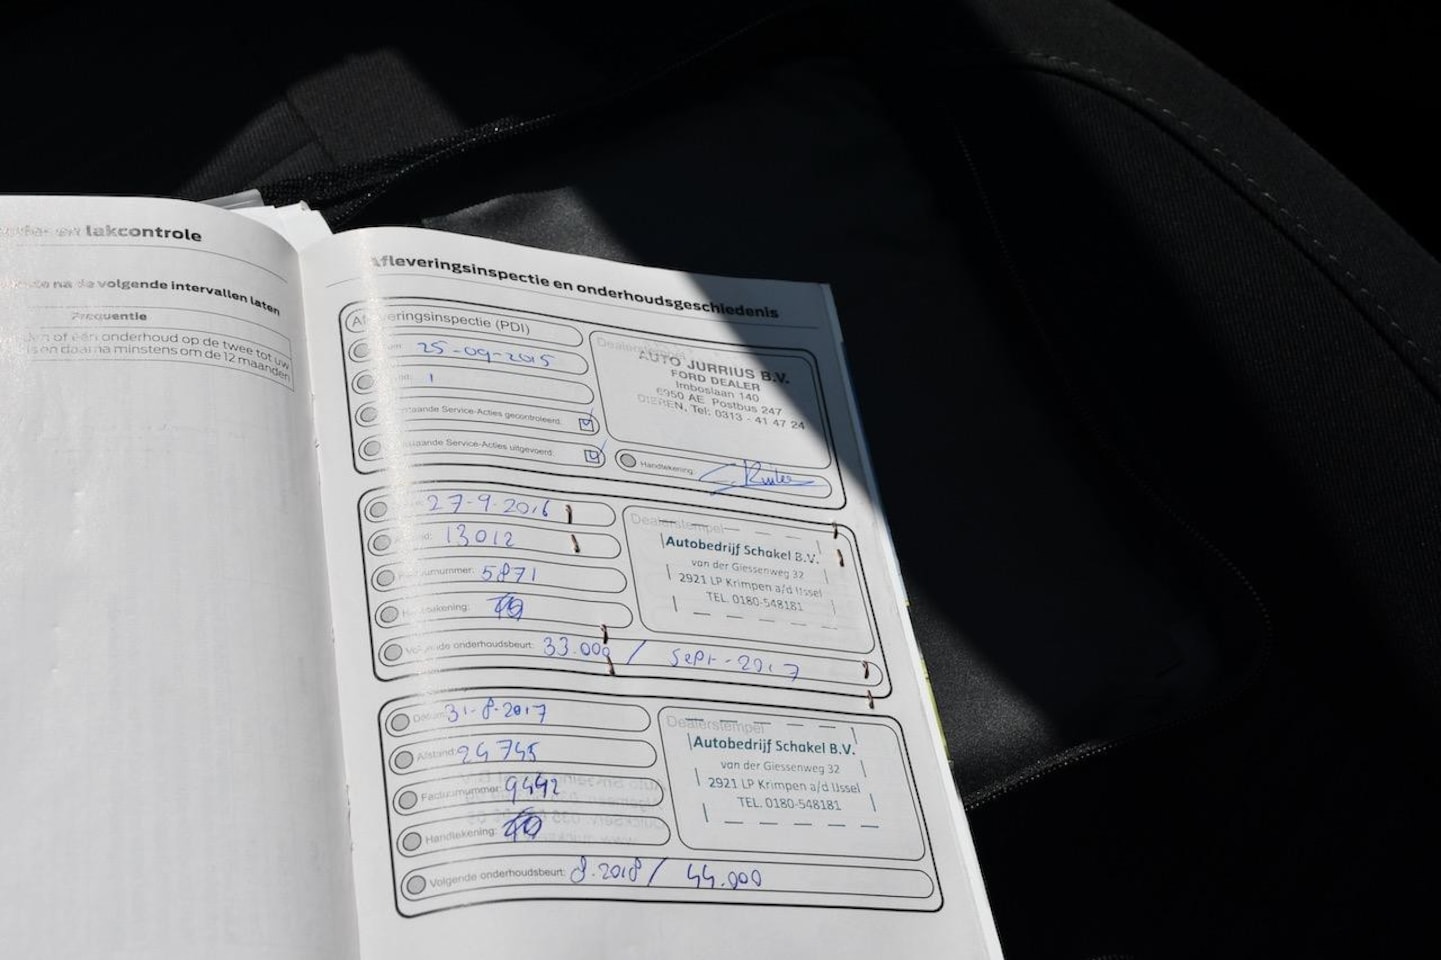 lakcontrole
na de volgende intervallen laten
Frequentie
of één onderhoud op de twee tot uw
en daarna minstens om de 12 maanden
Afleveringsinspectie en onderhoudsgeschiedenis
Afleveringsinspectie (PDI)
25-09-2015
1
Service-Acties gecontroleerd:
Service-Acties uitgevoerd:
Dealerstempel
AUTO JURRIUS B.V.
FORD DEALER
Imboslaan 140
6950 AE Postbus 247
DIEREN, Tel: 0313 - 41 47 24
Handtekening:
27-9-2016
13012
Factuurnummer: 5871
Handtekening:
Volgende onderhoudsbeurt: 33.000 / Sept-2017
Dealerstempel
Autobedrijf Schakel B.V.
van der Giessenweg 32
2921 LP Krimpen a/d IJssel
TEL. 0180-548181
Datum: 31-8-2017
Afstand: 24745
Factuurnummer: 9492
Handtekening:
Volgende onderhoudsbeurt: 8.2018 / 44.000
Dealerstempel
Autobedrijf Schakel B.V.
van der Giessenweg 32
2921 LP Krimpen a/d IJssel
TEL. 0180-548181